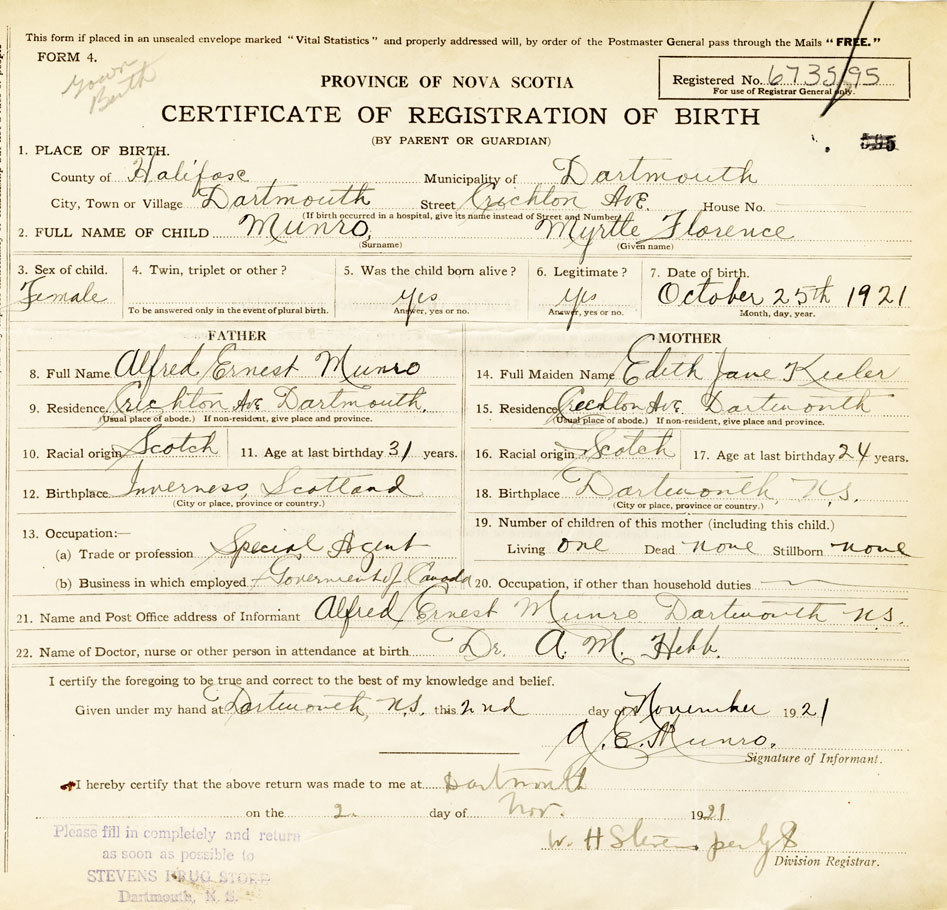 This form if placed in an unsealed envelope marked "Vital Statistics" and properly addressed will, by order of the Postmaster General pass through the Mails "FREE."
FORM 4.
Birth
PROVINCE OF NOVA SCOTIA
Registered No. 6735195
For use of Registrar General only.
CERTIFICATE OF REGISTRATION OF BIRTH
(BY PARENT OR GUARDIAN)
1. PLACE OF BIRTH.
County of Halifax Municipality of Dartmouth
City, Town or Village Dartmouth Street Crichton Ave. House No.
(If birth occurred in a hospital, give its name instead of Street and Number)
2. FULL NAME OF CHILD Munro, Myrtle Florence
(Surname) (Given name)
3. Sex of child. 4. Twin, triplet or other? 5. Was the child born alive? 6. Legitimate? 7. Date of birth.
Female yes yes October 25th 1921
To be answered only in the event of plural birth. Answer, yes or no. Answer, yes or no. Month, day, year.
FATHER MOTHER
8. Full Name Alfred Ernest Munro 14. Full Maiden Name Edith Jane Keeler
9. Residence Crichton Ave Dartmouth. 15. Residence Crichton Ave. Dartmouth
(Usual place of abode.) If non-resident, give place and province. (Usual place of abode.) If non-resident, give place and province.
10. Racial origin Scotch 11. Age at last birthday 31 years. 16. Racial origin Scotch 17. Age at last birthday 24 years.
12. Birthplace Inverness, Scotland 18. Birthplace Dartmouth, N.S.
(City or place, province or country.) (City or place, province or country.)
13. Occupation:— 19. Number of children of this mother (including this child.)
(a) Trade or profession Special Agent Living one Dead none Stillborn none
(b) Business in which employed Government of Canada 20. Occupation, if other than household duties
21. Name and Post Office address of Informant Alfred Ernest Munro Dartmouth N.S.
22. Name of Doctor, nurse or other person in attendance at birth Dr. A. M. Hebb.
I certify the foregoing to be true and correct to the best of my knowledge and belief.
Given under my hand at Dartmouth, N.S. this 2nd day of November 1921
A. E. Munro.
Signature of Informant.
I hereby certify that the above return was made to me at Dartmouth
on the 2. day of Nov. 1921
W. H Stevens per
Division Registrar.
Please fill in completely and return
as soon as possible to
STEVENS DRUG STORE
Dartmouth, N. S.